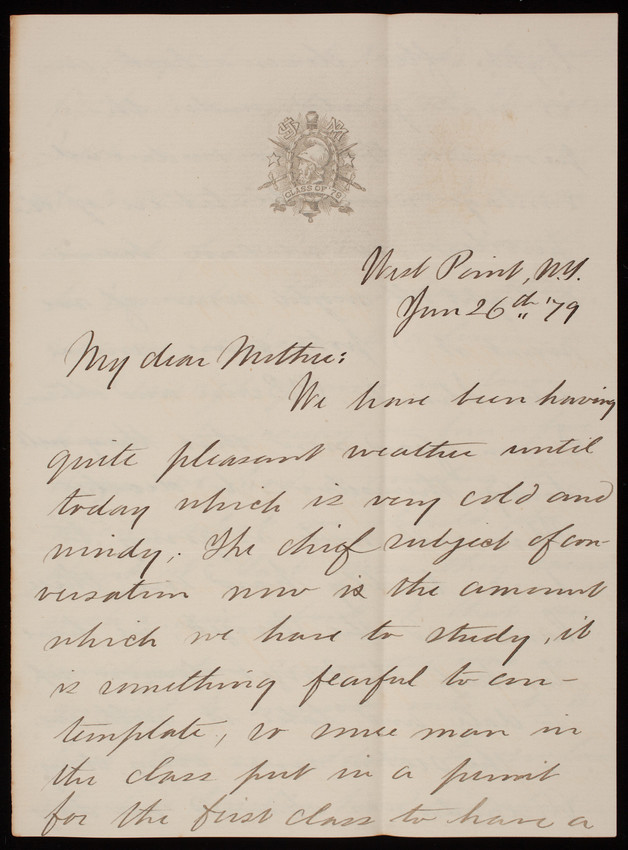 US MA
CLASS OF '79
West Point, N.Y.
Jan 26th '79
My dear Mother:
We have been having
quite pleasant weather until
today which is very cold and
windy. The chief subject of con-
versation now is the amount
which we have to study, it
is something fearful to con-
template, so one man in
the class put in a permit
for the first class to have a